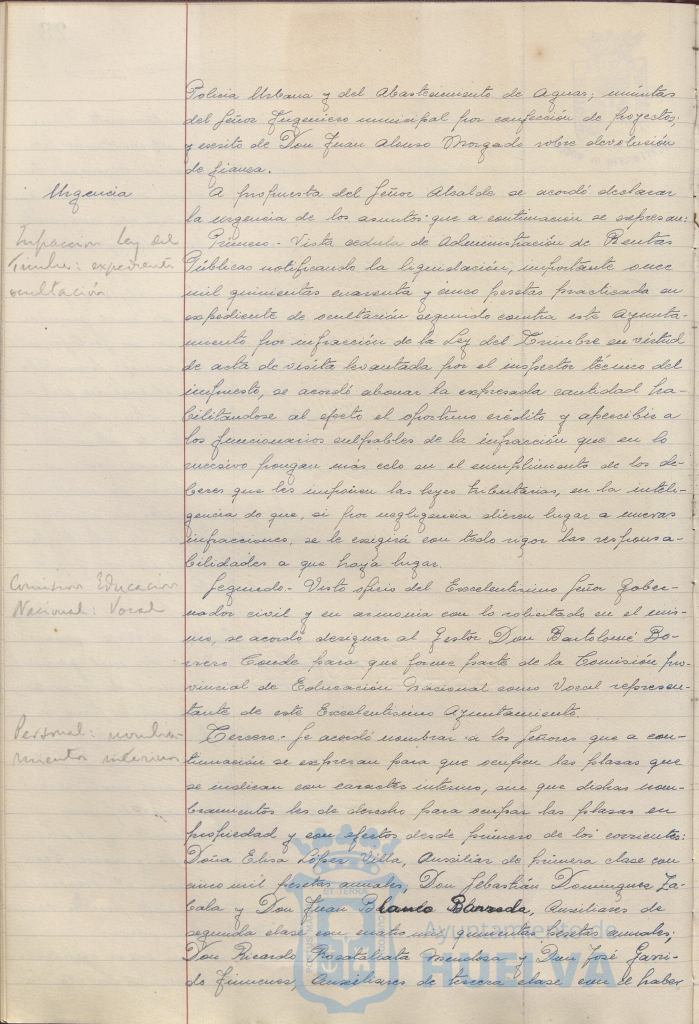 Policía Urbana y del Abastecimiento de Aguas; minutas
del Señor Ingeniero municipal por confección de proyectos;
y escrito de Don Juan Alonso Morgado sobre devolución
de fianza.
Urgencia
A propuesta del Señor Alcalde se acordó declarar
la urgencia de los asuntos que a continuación se expresan:
Infraccion Ley del
Timbre: expediente
ocultación
Primero.- Vista cédula de Administración de Rentas
Públicas notificando la liquidación, importante once
mil quinientas cuarenta y cinco pesetas practicada en
expediente de ocultación seguido contra este Ayunta-
miento por infracción de la Ley del Timbre en virtud
de acta de visita levantada por el inspector técnico del
impuesto, se acordó abonar la expresada cantidad ha-
bilitandose al efecto el oportuno crédito y apercibir a
los funcionarios culpables de la infracción que en lo
sucesivo pongan más celo en el cumplimiento de los de-
beres que les imponen las leyes tributarias, en la inteli-
gencia de que, si por negligencia dieren lugar a nuevas
infracciones, se le exigirá con todo rigor las responsa-
bilidades a que haya lugar.
Comision Educación
Nacional: Vocal
Segundo.- Visto oficio del Excelentísimo Señor Gober-
nador civil y en armonia con lo solicitado en el mis-
mo, se acordó designar al Gestor Don Bartolomé Bo-
rrero Conde para que forme parte de la Comisión pro-
vincial de Educación Nacional como Vocal represen-
tante de este Excelentísimo Ayuntamiento.
Personal: nombra-
mientos interinos
Tercero.- Se acordó nombrar a los Señores que a con-
tinuación se expresan para que ocupen las plazas que
se indican con caracter interino, sin que dichos nom-
bramientos les de derecho para ocupar las plazas en
propiedad y con efectos desde primero de los corrientes:
Doña Elisa López Villa, Auxiliar de primera clase con
cinco mil pesetas anuales, Don Sebastián Dominguez Za-
bala y Don Juan Blanco Barreda, Auxiliares de
segunda clase con cuatro mil quinientas pesetas anuales;
Don Ricardo Mendosa y Don José Garri-
do Jimenez, Auxiliares de tercera clase con el haber
Ayuntamiento de
HUELVA